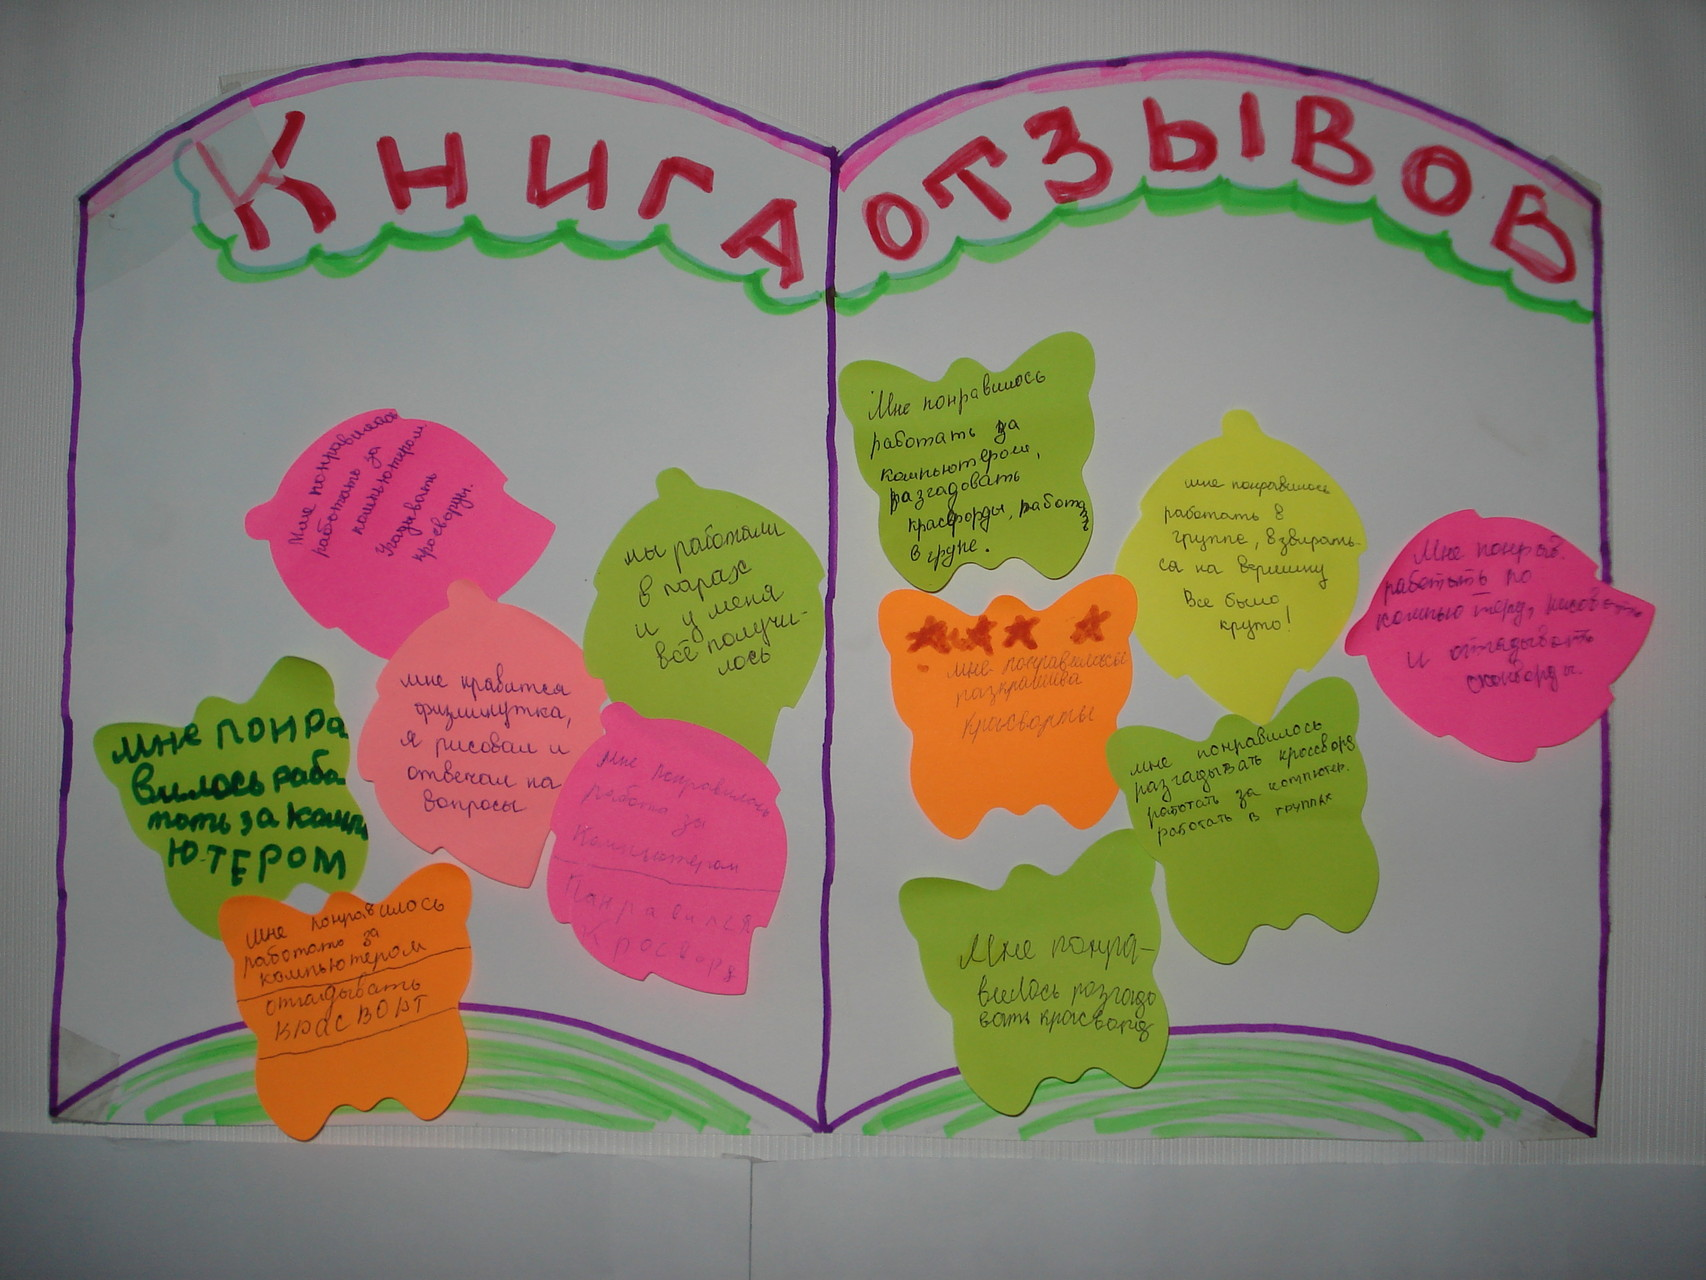 Книга отзывов
Мне понравилось
работать за
компьютером
Угадывать
кросворды.
мы работали
в парах
и у меня
всё получи-
лось
мне нравится
физминутка,
я рисовал и
отвечал на
вопросы
мне понра
вилось рабо
тать за комп
ЮТЕРОМ
Мне понравилось
работа за
Компьютером
Панравился
Кросворд
мне понравилось
работать за
компьютером
отгадывать
КРАСВОРТ
Мне понравилось
работать за
компьютером,
разгадовать
красворды, работать
в групе.
мне понравилось
работать в
группе, взбирать-
са на вершину
Все было
круто!
Мне понрав.
работать по
компьютеру, рисовать
и отгадывать
сконворды.
мне понравилось
разкрашива
Красворты
мне понравилось
разгадывать кроссворд
работать за компютер.
работать в группах
Мне понра-
вилось разгадо
вать красворд